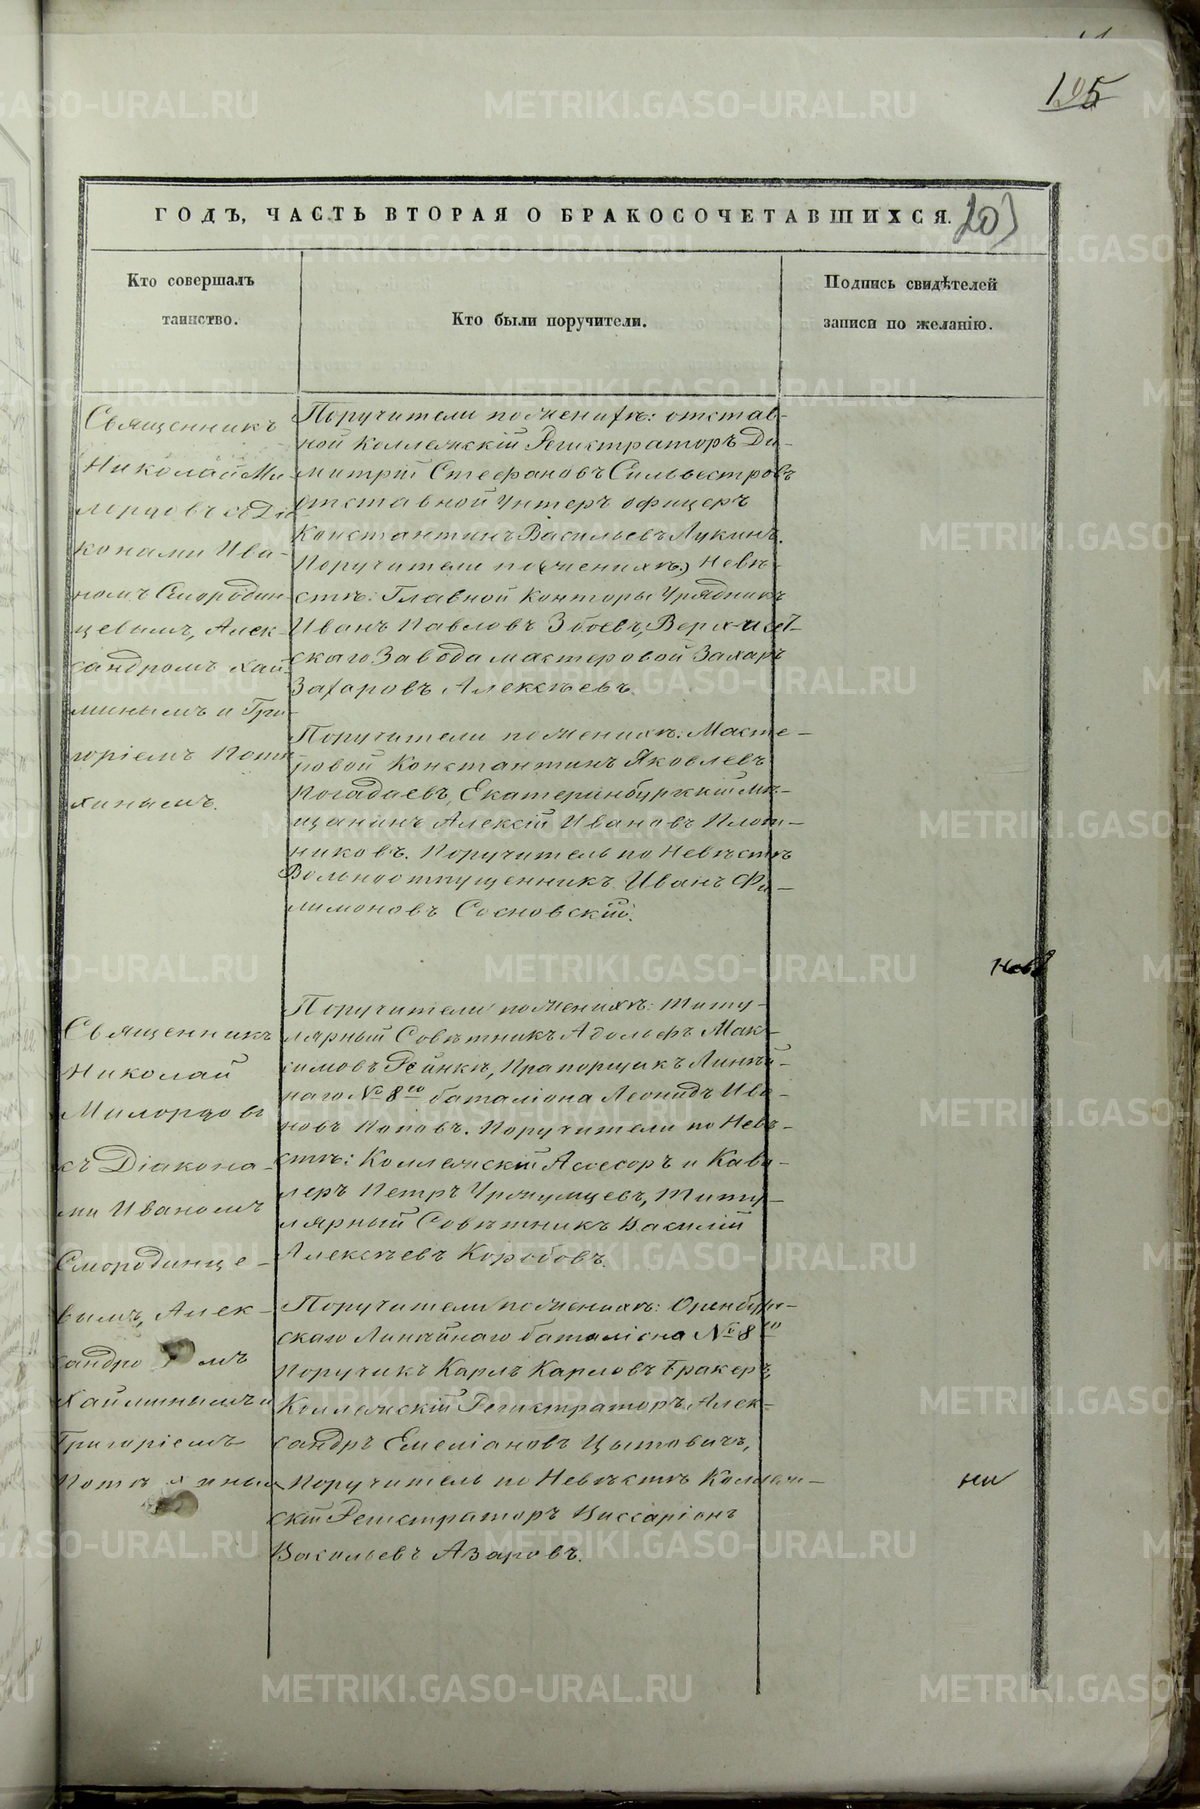 195
ГОДЪ, ЧАСТЬ ВТОРАЯ О БРАКОСОЧЕТАВШИХСЯ.
203
Кто совершалъ
таинство.
Кто были поручители.
Подпись свидѣтелей
записи по желанію.
Священникъ
Николай Ми
лорцовъ съ Діа
конами Ива-
номъ Смородин-
цевымъ, Алек-
сандромъ Хай-
минымъ и Гри-
горіемъ Поти
хинымъ.
Поручители по женихѣ: отстав-
ной Коллежскій Регистраторъ Ди-
митрій Стефановъ Сильвестровъ
отставной Унтеръ офицеръ
Константинъ Васильевъ Лукинъ.
Поручители по (женихѣ) Невѣ-
стѣ: Главной Конторы Урядникъ
Иванъ Павловъ Збоевъ, Верх-Исет-
скаго Завода мастеровой Захаръ
Захаровъ Алексѣевъ.
Поручители по женихѣ: Масте-
ровой Константинъ Яковлевъ
Погадаевъ, Екатеринбургскій Мѣ-
щанинъ Алексѣй Ивановъ Плот-
никовъ. Поручитель по Невѣстѣ
Вольноотпущенникъ Иванъ Фи-
лимоновъ Сосновскій.
Священникъ
Николай
Милорцовъ
съ Діакона-
ми Иваномъ
Смородинце-
вымъ, Алек-
сандромъ
Хайминымъ и
Григоріемъ
Поручители по женихѣ: Титу-
лярный Совѣтникъ Адольфъ Мак-
симовъ Рейнке, Прапорщикъ Линѣй-
наго № 8го баталіона Леонидъ Ива-
новъ Поповъ. Поручители по Невѣ-
стѣ: Коллежскій Асессоръ и Кава-
леръ Петръ Уржумцевъ, Титу-
лярный Совѣтникъ Василій
Алексѣевъ Коробовъ.
Поручители по женихѣ: Оренбург-
скаго Линѣйнаго баталіона № 8го
Поручикъ Карлъ Карловъ Бракеръ,
Коллежскій Регистраторъ Алек-
сандръ Емеліановъ Цытовичъ,
Поручитель по Невѣстѣ Коллеж-
скій Регистраторъ Виссаріонъ
Васильевъ Азаровъ.
METRIKI.GASO-URAL.RU